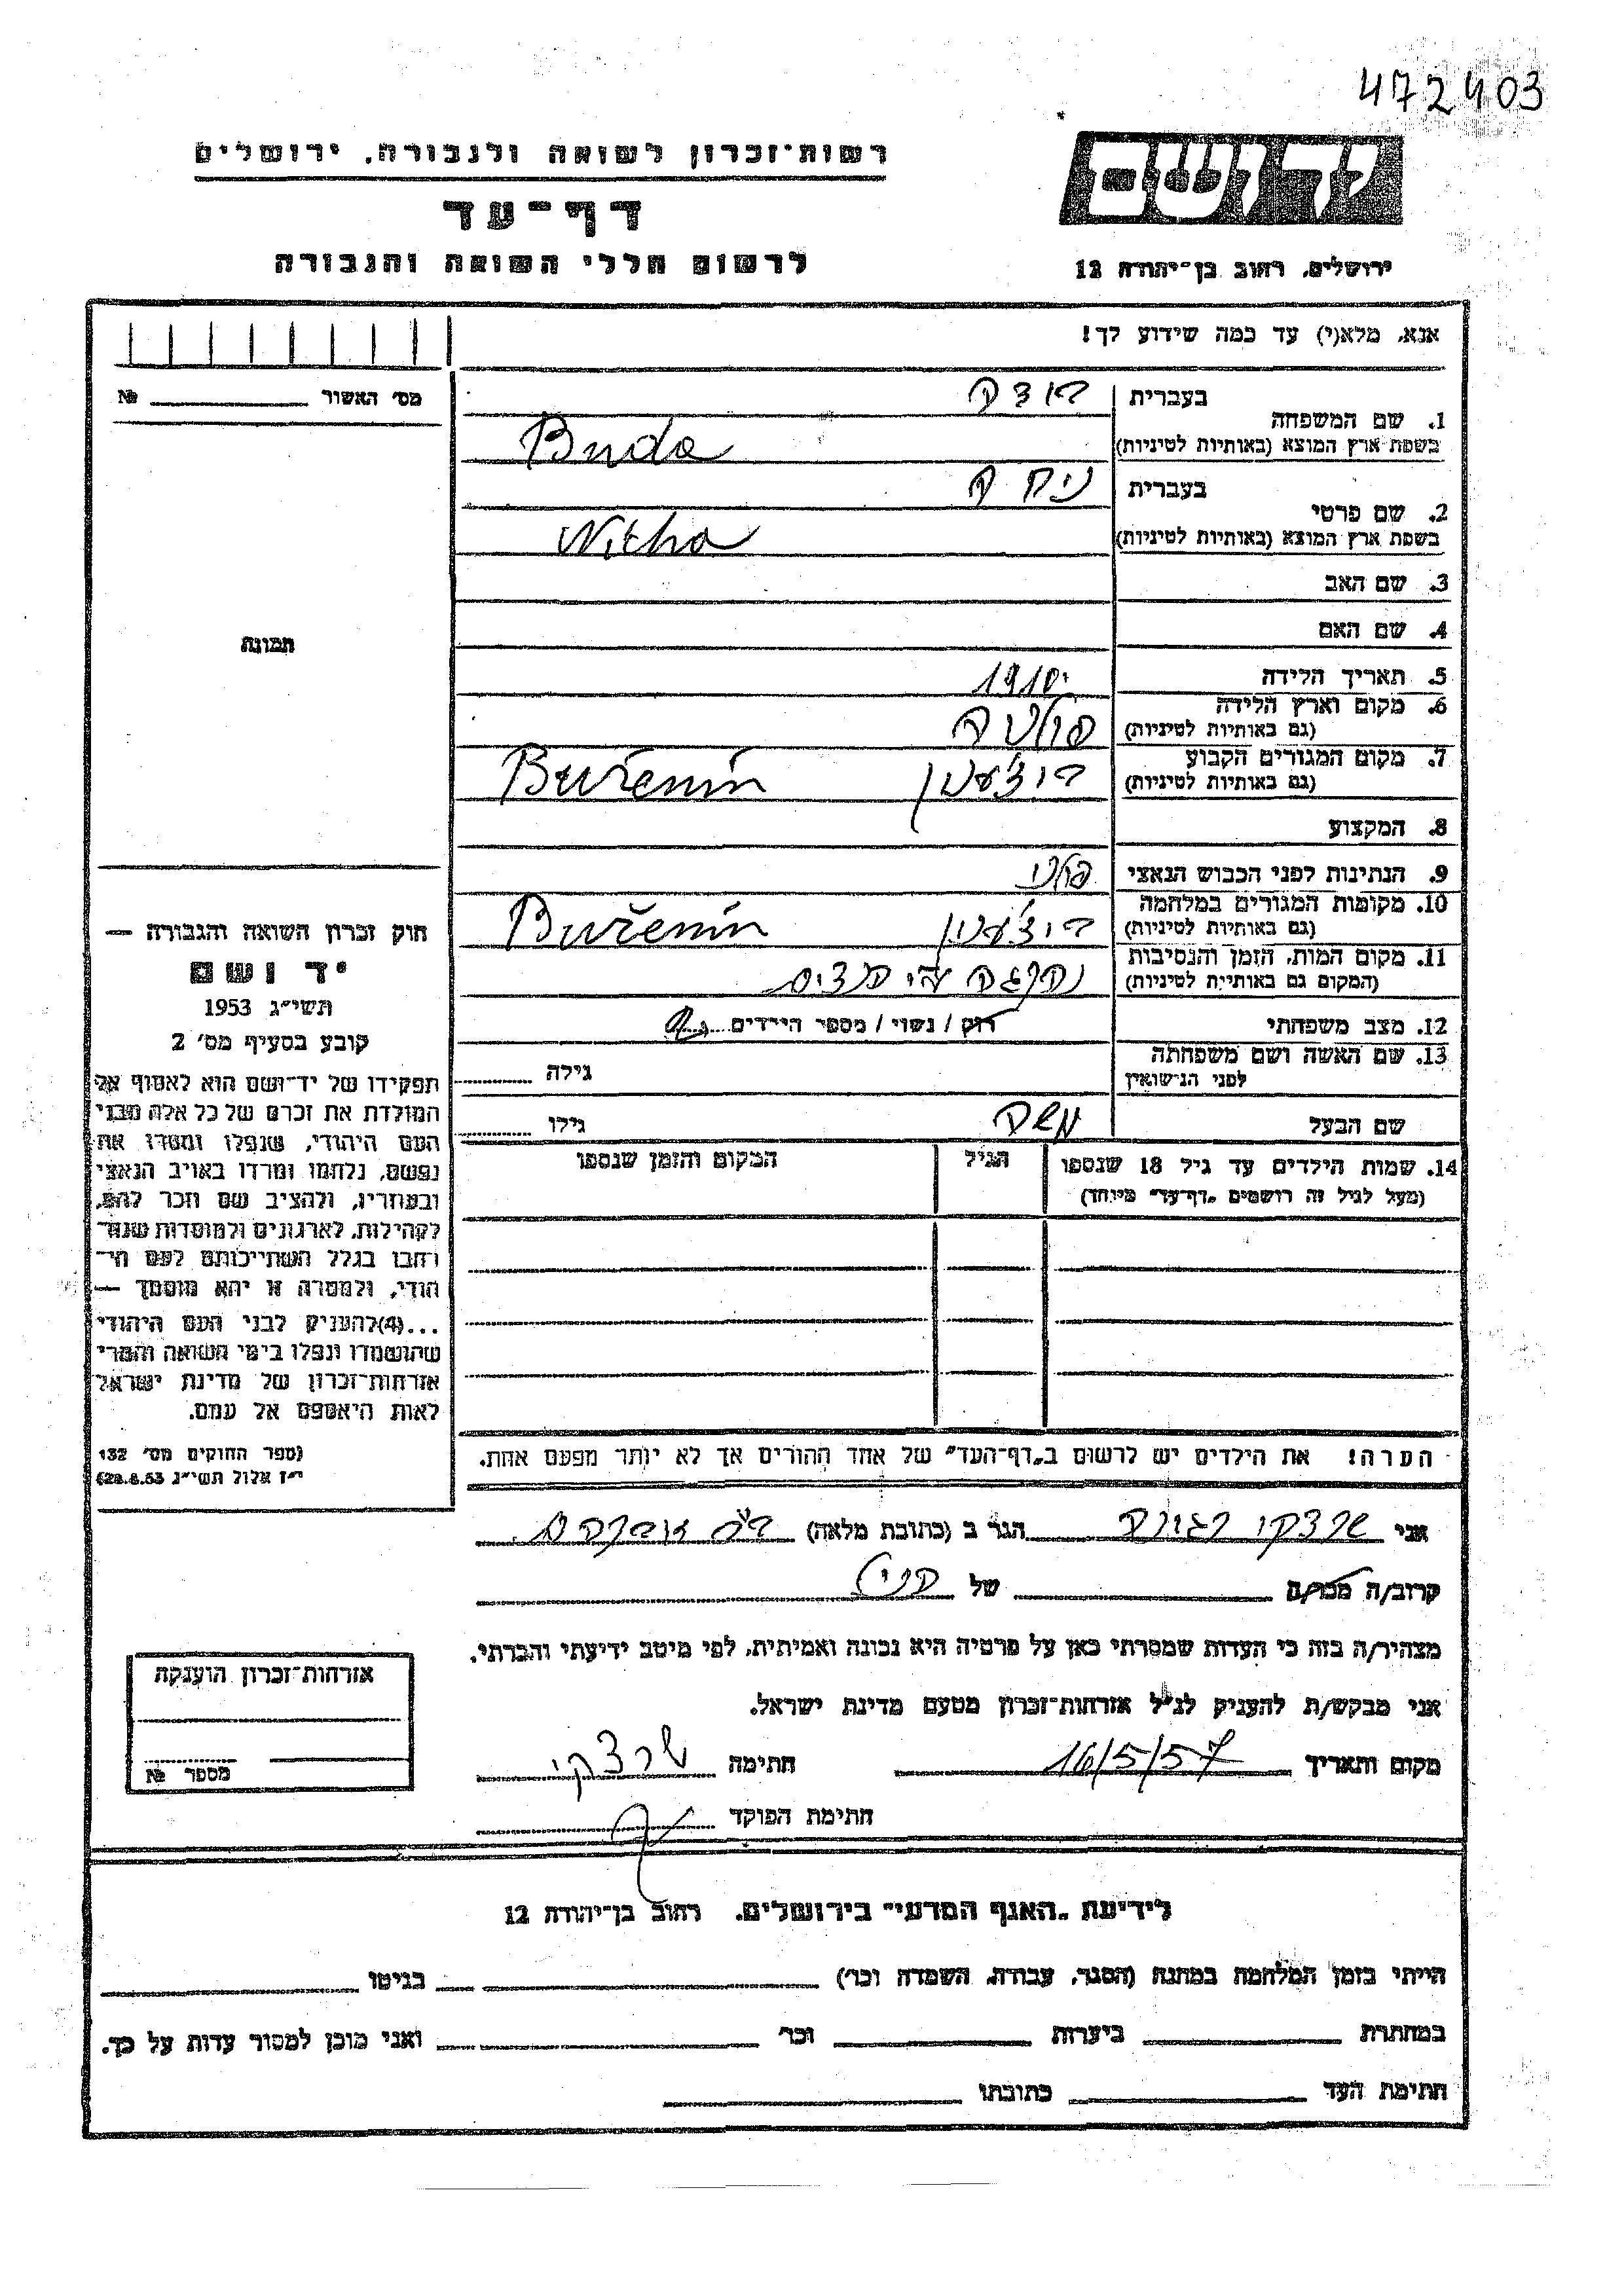 472403
רשות־זכרון לשואה ולגבורה, ירושלים
יד ושם
דף־עד
לרשום חללי השואה והגבורה
ירושלים, רחוב בן־יהודה 12
אנא, מלא(י) עד כמה שידוע לך!
מס׳ האשור № ____
1. שם המשפחה
בעברית
בשפת ארץ המוצא (באותיות לטיניות) Buda
2. שם פרטי
בעברית
בשפת ארץ המוצא (באותיות לטיניות) Nitha
3. שם האב
4. שם האם
תמונה
5. תאריך הלידה 1910
6. מקום וארץ הלידה פולניה
(גם באותיות לטיניות)
7. מקום המגורים הקבוע Buženin
(גם באותיות לטיניות)
8. המקצוע
9. הנתינות לפני הכבוש הנאצי פולני
10. מקומות המגורים במלחמה Buženin
(גם באותיות לטיניות)
11. מקום המות, הזמן והנסיבות
(המקום גם באותיות לטיניות) נהרגה ע״י נצים
12. מצב משפחתי רוק / נשוי / מספר הילדים
13. שם האשה ושם משפחתה
לפני הנישואין
גילה
שם הבעל משה גילו
14. שמות הילדים עד גיל 18 שנספו
(מעל לגיל זה רושמים „דף־עד״ מיוחד)
הגיל
המקום והזמן שנספו
הערה! את הילדים יש לרשום ב„דף־העד״ של אחד ההורים אך לא יותר מפעם אחת.
חוק זכרון השואה והגבורה —
יד ושם
תשי״ג 1953
קובע בסעיף מס׳ 2
תפקידו של יד־ושם הוא לאסוף אל
המולדת את זכרם של כל אלה מבני
העם היהודי, שנפלו ומסרו את
נפשם, נלחמו ומרדו באויב הנאצי
ובעוזריו, ולהציב שם וזכר להם,
לקהילות, לארגונים ולמוסדות שנח־
רבו בגלל השתייכותם לעם הי־
הודי, ולמטרה זו יהא מוסמך —
...(4)להעניק לבני העם היהודי
שהושמדו ונפלו בימי השואה והמרי
אזרחות־זכרון של מדינת ישראל
לאות היאספם אל עמם.
(ספר החוקים מס׳ 132
י״ז אלול תשי״ג 28.8.53)
אני הגר ב (כתובת מלאה)
קרוב/ה מכר/ה של
מצהיר/ה בזה כי העדות שמסרתי כאן על פרטיה היא נכונה ואמיתית, לפי מיטב ידיעתי והכרתי.
אני מבקש/ת להעניק לנ״ל אזרחות־זכרון מטעם מדינת ישראל.
מקום ותאריך 16/5/57 חתימה
חתימת הפוקד
אזרחות־זכרון הוענקה
מספר №
לידיעת „האגף המדעי״ בירושלים, רחוב בן־יהודה 12
הייתי בזמן המלחמה במחנה (הסגר, עבודה, השמדה וכו׳) ____ בגיטו ____
במחתרת ____ ביערות ____ וכו׳ ____ ואני מוכן למסור עדות על כך.
חתימת העד ____ כתובתו ____